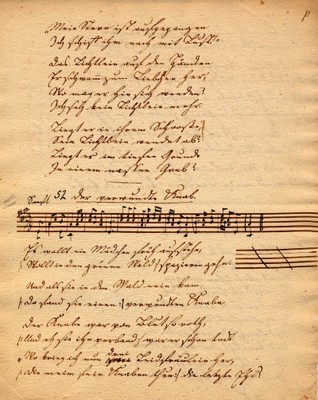 Mein Stern ist aufgegangen
Ich schiff ihm nach mit Lust.
Das Lichtlein auf den Händen
Er schwamm zum Liebchen her,
Wo mag er hin sich wenden
Ich seh kein Lichtlein mehr.
Liegt er in ihrem Schooße,
Sein Lichtlein wendet ab?
Liegt er im tiefen Grunde
In einem nassen Grab?
52 Der verwundte Knab.
Es wollt ein Mädchen früh aufstehn,
Wollt in den grünen Wald spazieren gehn.
Und als sie in den Wald nein kam
Da fand sie einen verwundten Knabe
Der Knabe war von Blut so roth,
Und eh sie ihn verband, war er schon todt
Wo krieg ich nun drei Leidfräulein her,
Die mein fein Knaben die letzte